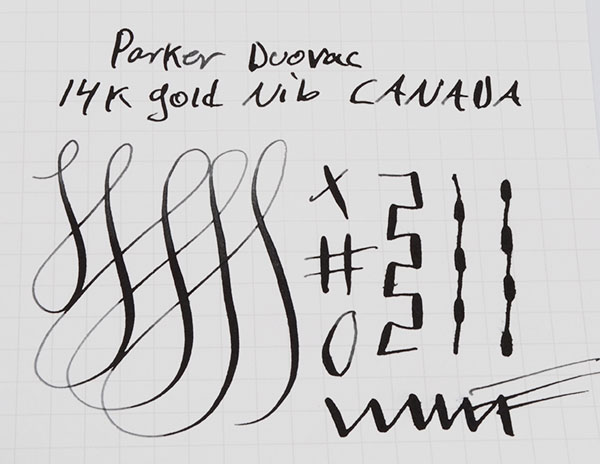 Parker Duovac
14K gold Nib CANADA
X
#
O